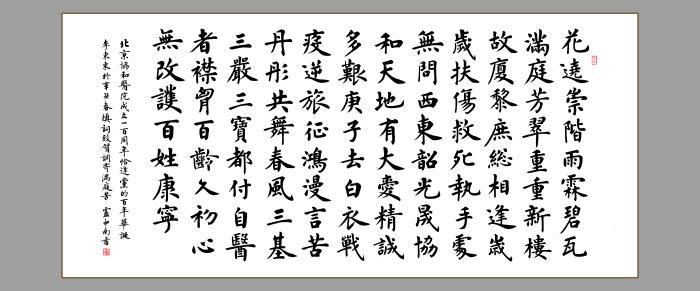 花遶崇階雨霖碧瓦
滿庭芳翠重重新樓
故廈黎庶總相逢歲
歲扶傷救死執手處
無問西東韶光晟協
和天地有大愛精誠
多艱庚子去白衣戰
疫逆旅征鴻漫言苦
丹彤共舞春風三基
三嚴三寶都付自醫
者襟胷百齡久初心
無改護百姓康寧
北京協和醫院成立一百周年恰逢黨的百年華誕
牟東東於辛丑春填詞致賀調寄滿庭芳 盧中南書